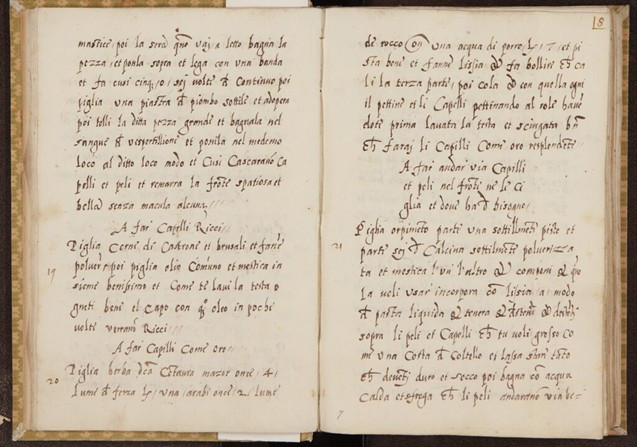 mastice, poi la sera qñ vai a letto bagna la
pezza, et ponla sopra et lega con una banda
et fa cusi cinq; o, sej volte & continuo poi
piglia una piastra di piombo sottile et adopera
poi telli la ditta pezza grande et bagnala nel
sangue di vespertilioni et ponila nel medemo
loco al ditto loco modo et cusi cascarano ca
pelli et peli et remarra la fronte spatiosa et
bella senza macula alcuna
A far Capelli Ricci
19
Piglia Corni di Castroni et brusali et farne
polvere, poi piglia olio Comuno et mestica in
sieme benissimo et Come te lavi la testa o
gneti bene el Capo con qo oleo in pochi
volte verrano Ricci
A far Capilli Come oro
20
Piglia herba dca Cetaura mazor once, 4,
lume di feza lb, una, arabi once, 2, lume
18
de rocco con una acqua di porre, lb, 7, et pi
sta bene et fanne lissia, et fa bollire
la terza parte, poi cola et con quella ogni
il pettine et li Capelli pettinando al sole have
dote prima lavata la testa et sciugata
faraj li Capilli Come oro resplendete
A far andar via Capilli
et peli nel fronte ne li Ci
glia et dove bisogna
21
Piglia orpimeto parti una sottilmete piste et
parte sej di Calcina sottilmete polveriza
ta et mestica l'un l'altro
la voli usar incorpora co lissia, a, modo
di pasta liquida et tenera
sopra li peli et Capelli tu voli grosso Co
me una Costa di Coltello et lassa star tato
deveti duro et secco poi bagna co acqua
Calda et frega li peli andarano via be-